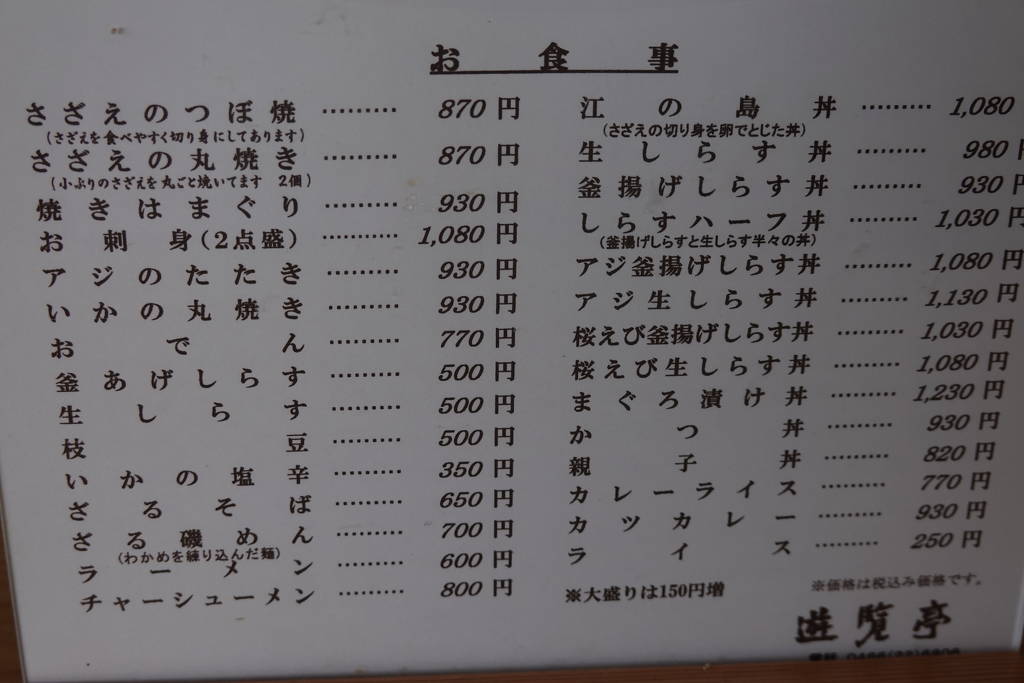 お食事
さざえのつぼ焼 ……… 870 円
(さざえを食べやすく切り身にしてあります)
さざえの丸焼き ……… 870 円
(小ぶりのさざえを丸ごと焼いてます 2個)
焼きはまぐり ……… 930 円
お刺身(2点盛) ……… 1,080 円
アジのたたき ……… 930 円
いかの丸焼き ……… 930 円
おでん ……… 770 円
釜あげしらす ……… 500 円
生しらす ……… 500 円
枝豆 ……… 500 円
いかの塩辛 ……… 350 円
ざるそば ……… 650 円
ざる磯めん ……… 700 円
(わかめを練り込んだ麺)
ラーメン ……… 600 円
チャーシューメン ……… 800 円
江の島丼 ……… 1,080
(さざえの切り身を卵でとじた丼)
生しらす丼 ……… 980 円
釜揚げしらす丼 ……… 930 円
しらすハーフ丼 ……… 1,030 円
(釜揚げしらすと生しらす半々の丼)
アジ釜揚げしらす丼 ……… 1,080 円
アジ生しらす丼 ……… 1,130 円
桜えび釜揚げしらす丼 ……… 1,030 円
桜えび生しらす丼 ……… 1,080 円
まぐろ漬け丼 ……… 1,230 円
かつ丼 ……… 930 円
親子丼 ……… 820 円
カレーライス ……… 770 円
カツカレー ……… 930 円
ライス ……… 250 円
※大盛りは150円増
※価格は税込み価格です。
遊覧亭